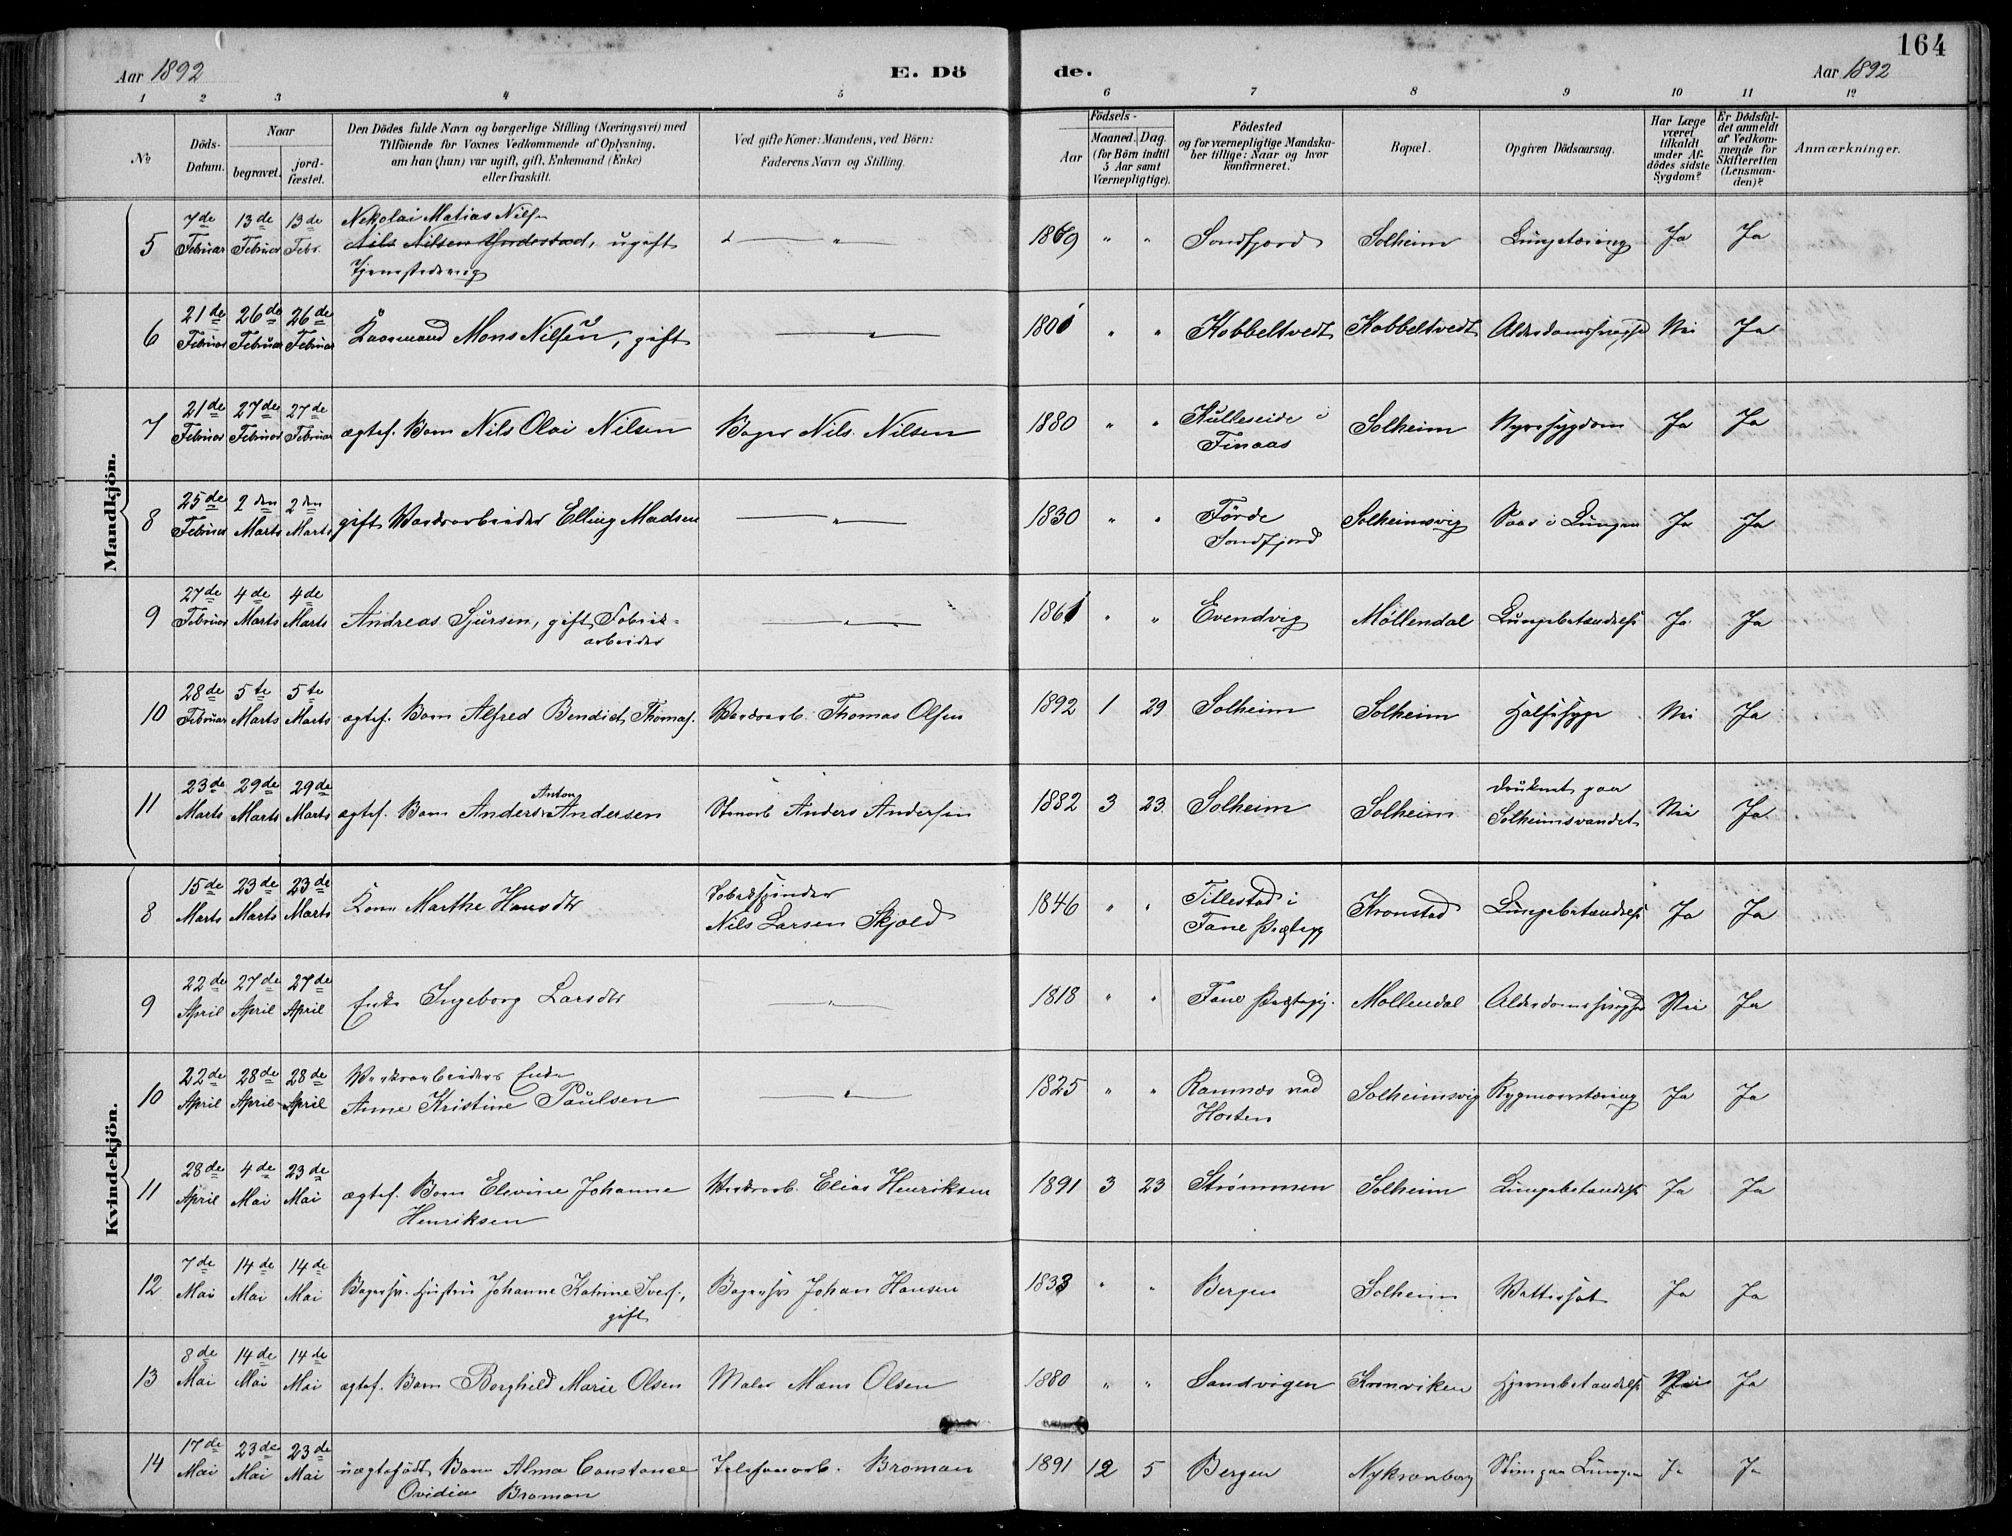 164
Aar 1892
E. Dö
de.
Aar 1892
1 2 3 4 5 6 7 8 9 10 11 12
No
Döds-Datum.
Naar
begravet.
jord-fæstet.
Den Dödes fulde Navn og borgerlige Stilling (Næringsvei) med
Tilföiende for Voxnes Vedkommende af Oplysning,
om han (hun) var ugift, gift, Enkemand (Enke)
eller fraskilt.
Ved gifte Koner: Mandens, ved Börn:
Faderens Navn og Stilling.
Födsels-
Aar
Maaned. Dag.
(for Börn indtil
5 Aar samt
Værnepligtige).
Födested
og for værnepligtige Mandska-
ber tillige: Naar og hvor
konfirmeret.
Bopæl.
Opgiven Dödsaarsag.
Har Læge
været
tilkaldt
under Af-
dödes sidste
Sygdom?
Er Dödsfal-
det anmeldt
af Vedkom-
mende for
Skifteretten
(Lensman-
den)?
Anmærkninger.
Mandkjön.
5 7de Februar 13de Februar 13de Febr. Nekolai Matias Nilsen
Nils Nilsen, ugift
1869 " " Sondfjord Solheim Lungetæring Ja Ja
6 21de Februar 26de Februar 26de Februar Kaarmand Mons Nilsen, gift — " — 1801 " " Kobbeltvedt Kobbeltvedt Alderdomssvaghed Nei Ja
7 21de Februar 27de Februar 27de Februar ægtef. Barn Nils Olai Nilsen Bager Nils Nilsen 1880 " " Kulleseide i
Finaas Solheim Nyresygdom Ja Ja
8 25de Februar 2den Marts 2den Marts gift Værksarbeider Elling Madsen — " — 1830 " " Förde
Sondfjord Solheimsvig Saar i Lungen Ja Ja
9 27de Februar 4de Marts 4de Marts Andreas Sjursen, gift Fabrik-
arbeider — " — 1861 " " Evendvig Møllendal Lungebetændelse Ja Ja
10 28de Februar 5te Marts 5te Marts ægtef. Barn Alfred Bendict Thomas. Værksarb. Thomas Olsen 1892 1 29 Solheim Solheim Halssyge Nei Ja
11 23de Marts 29de Marts 29de Marts ægtef. Barn Anders Anton Andersen Stenarb Anders Andersen 1882 3 23 Solheim Solheim druknet paa
Solheimsvandet Nei Ja
Kvindekjön.
8 15de Marts 23de Marts 23de Marts Kone Marthe Hansdtr Tobakspinder
Nils Larsen Skjold 1846 " " Titlestad i
Fane Præstegj Kronstad Lungebetændelse Ja Ja
9 22de April 27de April 27de April Enke Ingeborg Larsdtr — " — 1818 " " Fane Præstegj. Mollendal Alderdomssvaghed Nei Ja
10 22de April 28de April 28de April Værksarbeiders Enke
Anne Kristine Paulsen — " — 1825 " " Ramnæs ved
Horten Solheimsvig Rygmarvstæring Ja Ja
11 28de April 4de Mai 23de Mai ægtef. Barn Elevine Johanne
Henriksen Værksarb. Elias Henriksen 1891 3 23 Strømmen Solheim Lungebetændelse Ja Ja
12 7de Mai 14de Mai 14de Mai Bagersv. Hustru Johanne Katrine Svers.,
gift Bagersv Johan Hansen 1833 " " Bergen Solheim Wattersot Ja Ja
13 8de Mai 14de Mai 14de Mai ægtef. Barn Borghild Marie Olsen Maler Mons Olsen 1880 " " Sandvigen Kronviken Hjernebetændelse Nei Ja
14 17de Mai 23de Mai 23de Mai uægtefödt Barn Alma Constance
Ovidia Broman Telefonarb. Broman 1891 12 5 Bergen Nykronborg Lungen Ja Ja